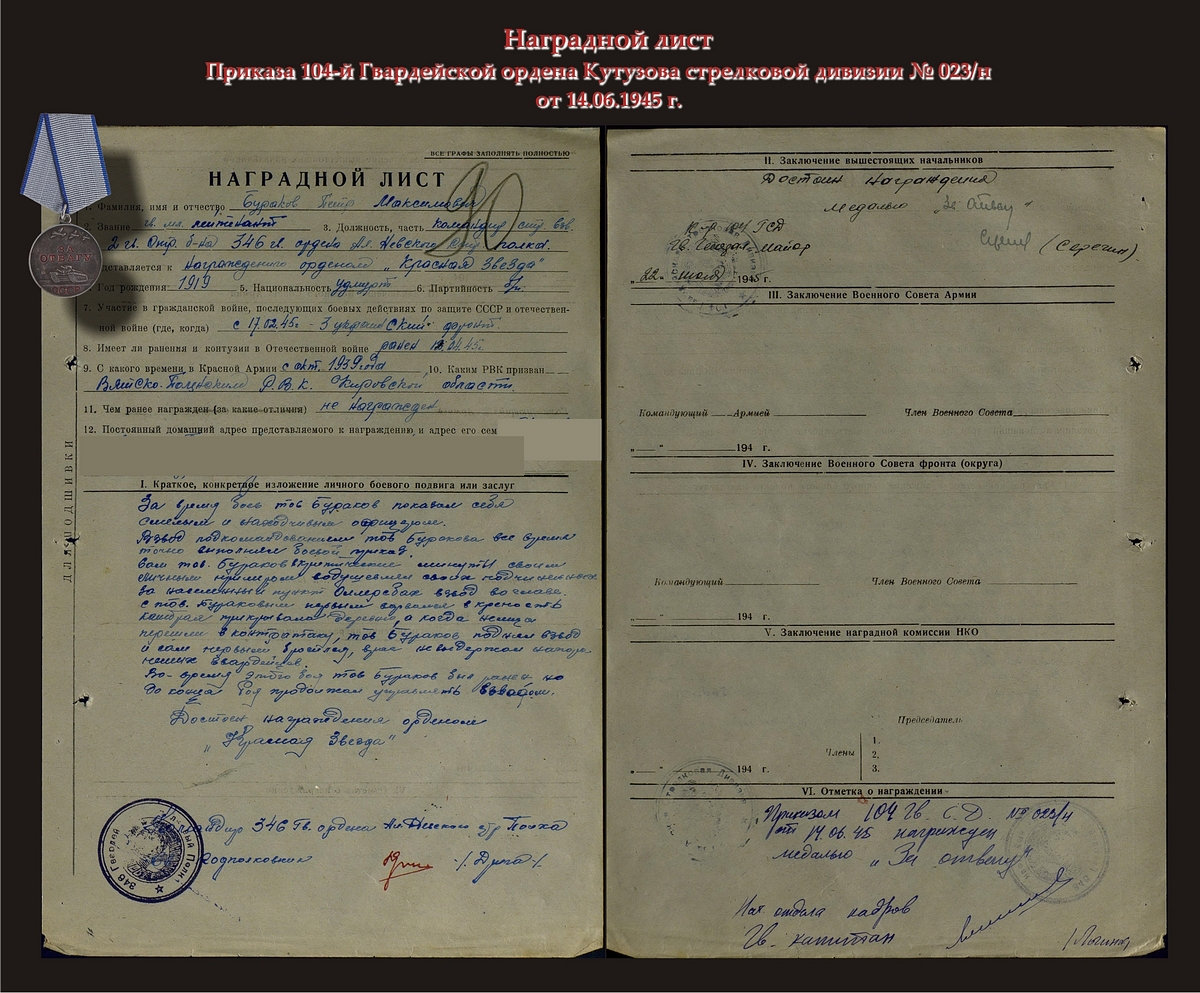 Наградной лист
Приказа 104-й Гвардейской ордена Кутузова стрелковой дивизии № 023/н
от 14.06.1945 г.
ВСЕ ГРАФЫ ЗАПОЛНЯТЬ ПОЛНОСТЬЮ
НАГРАДНОЙ ЛИСТ
Фамилия, имя и отчество Бураков Петр Максимович
2. Звание гв. мл. лейтенант 3. Должность, часть командир стр. взв.
2 гв. Отр. б-на 346 гв. ордена Ал. Невского стр. полка.
дставляется к Награждению орденом „Красная Звезда"
Год рождения 1919 5. Национальность удмурт 6. Партийность б/п.
7. Участие в гражданской войне, последующих боевых действиях по защите СССР и отечествен-
ной войне (где, когда) с 17.02.45г - 3 украинский фронт
8. Имеет ли ранения и контузии в Отечественной войне ранен 04.45г.
9. С какого времени в Красной Армии с окт. 1939 года 10. Каким РВК призван
Р.В.К. Кировской области
11. Чем ранее награжден (за какие отличия) не награжден
12. Постоянный домашний адрес представляемого к награждению и адрес его сем
ДЛЯ ПОДШИВКИ
I. Краткое, конкретное изложение личного боевого подвига или заслуг
За время боев тов Бураков показал себя
смелым и находчивым офицером.
Взвод под командованием тов Буракова все время
точно выполнял боевой приказ.
Сам тов. Бураков в критические минуты своим
личным примером водушевлял своих подчиненных
за населенный пункт взвод во главе
с тов. Бураковым первым ворвался в крепость
которая прикрывала деревню, а когда немцы
перешли в контратаку, тов Бураков поднял взвод
и сам первый бросился, враг не выдержал напора
наших гвардейцев.
Во-время этого боя тов Бураков был ранен но
до конца боя продолжал управлять взводом.
Достоин награждения орденом
„Красная Звезда"
Командир 346 Гв. ордена Ал. Невского стр Полка
Подполковник
II. Заключение вышестоящих начальников
Достоин награждения
медалью „За отвагу"
К-р 104 ГСД
Гв. Генерал майор (Серегин).
„22" 1945 г.
III. Заключение Военного Совета Армии
Командующий Армией Член Военного Совета
„ " 194 г.
IV. Заключение Военного Совета фронта (округа)
Командующий Член Военного Совета
„ " 194 г.
V. Заключение наградной комиссии НКО
Председатель
Члены
1.
2.
3.
„ " 194 г.
VI. Отметка о награждении
Приказом 104 Гв. С.Д. № 023/н
от 14.06.45 награжден
медалью „За отвагу"
Нач отдела кадров
Гв. капитан